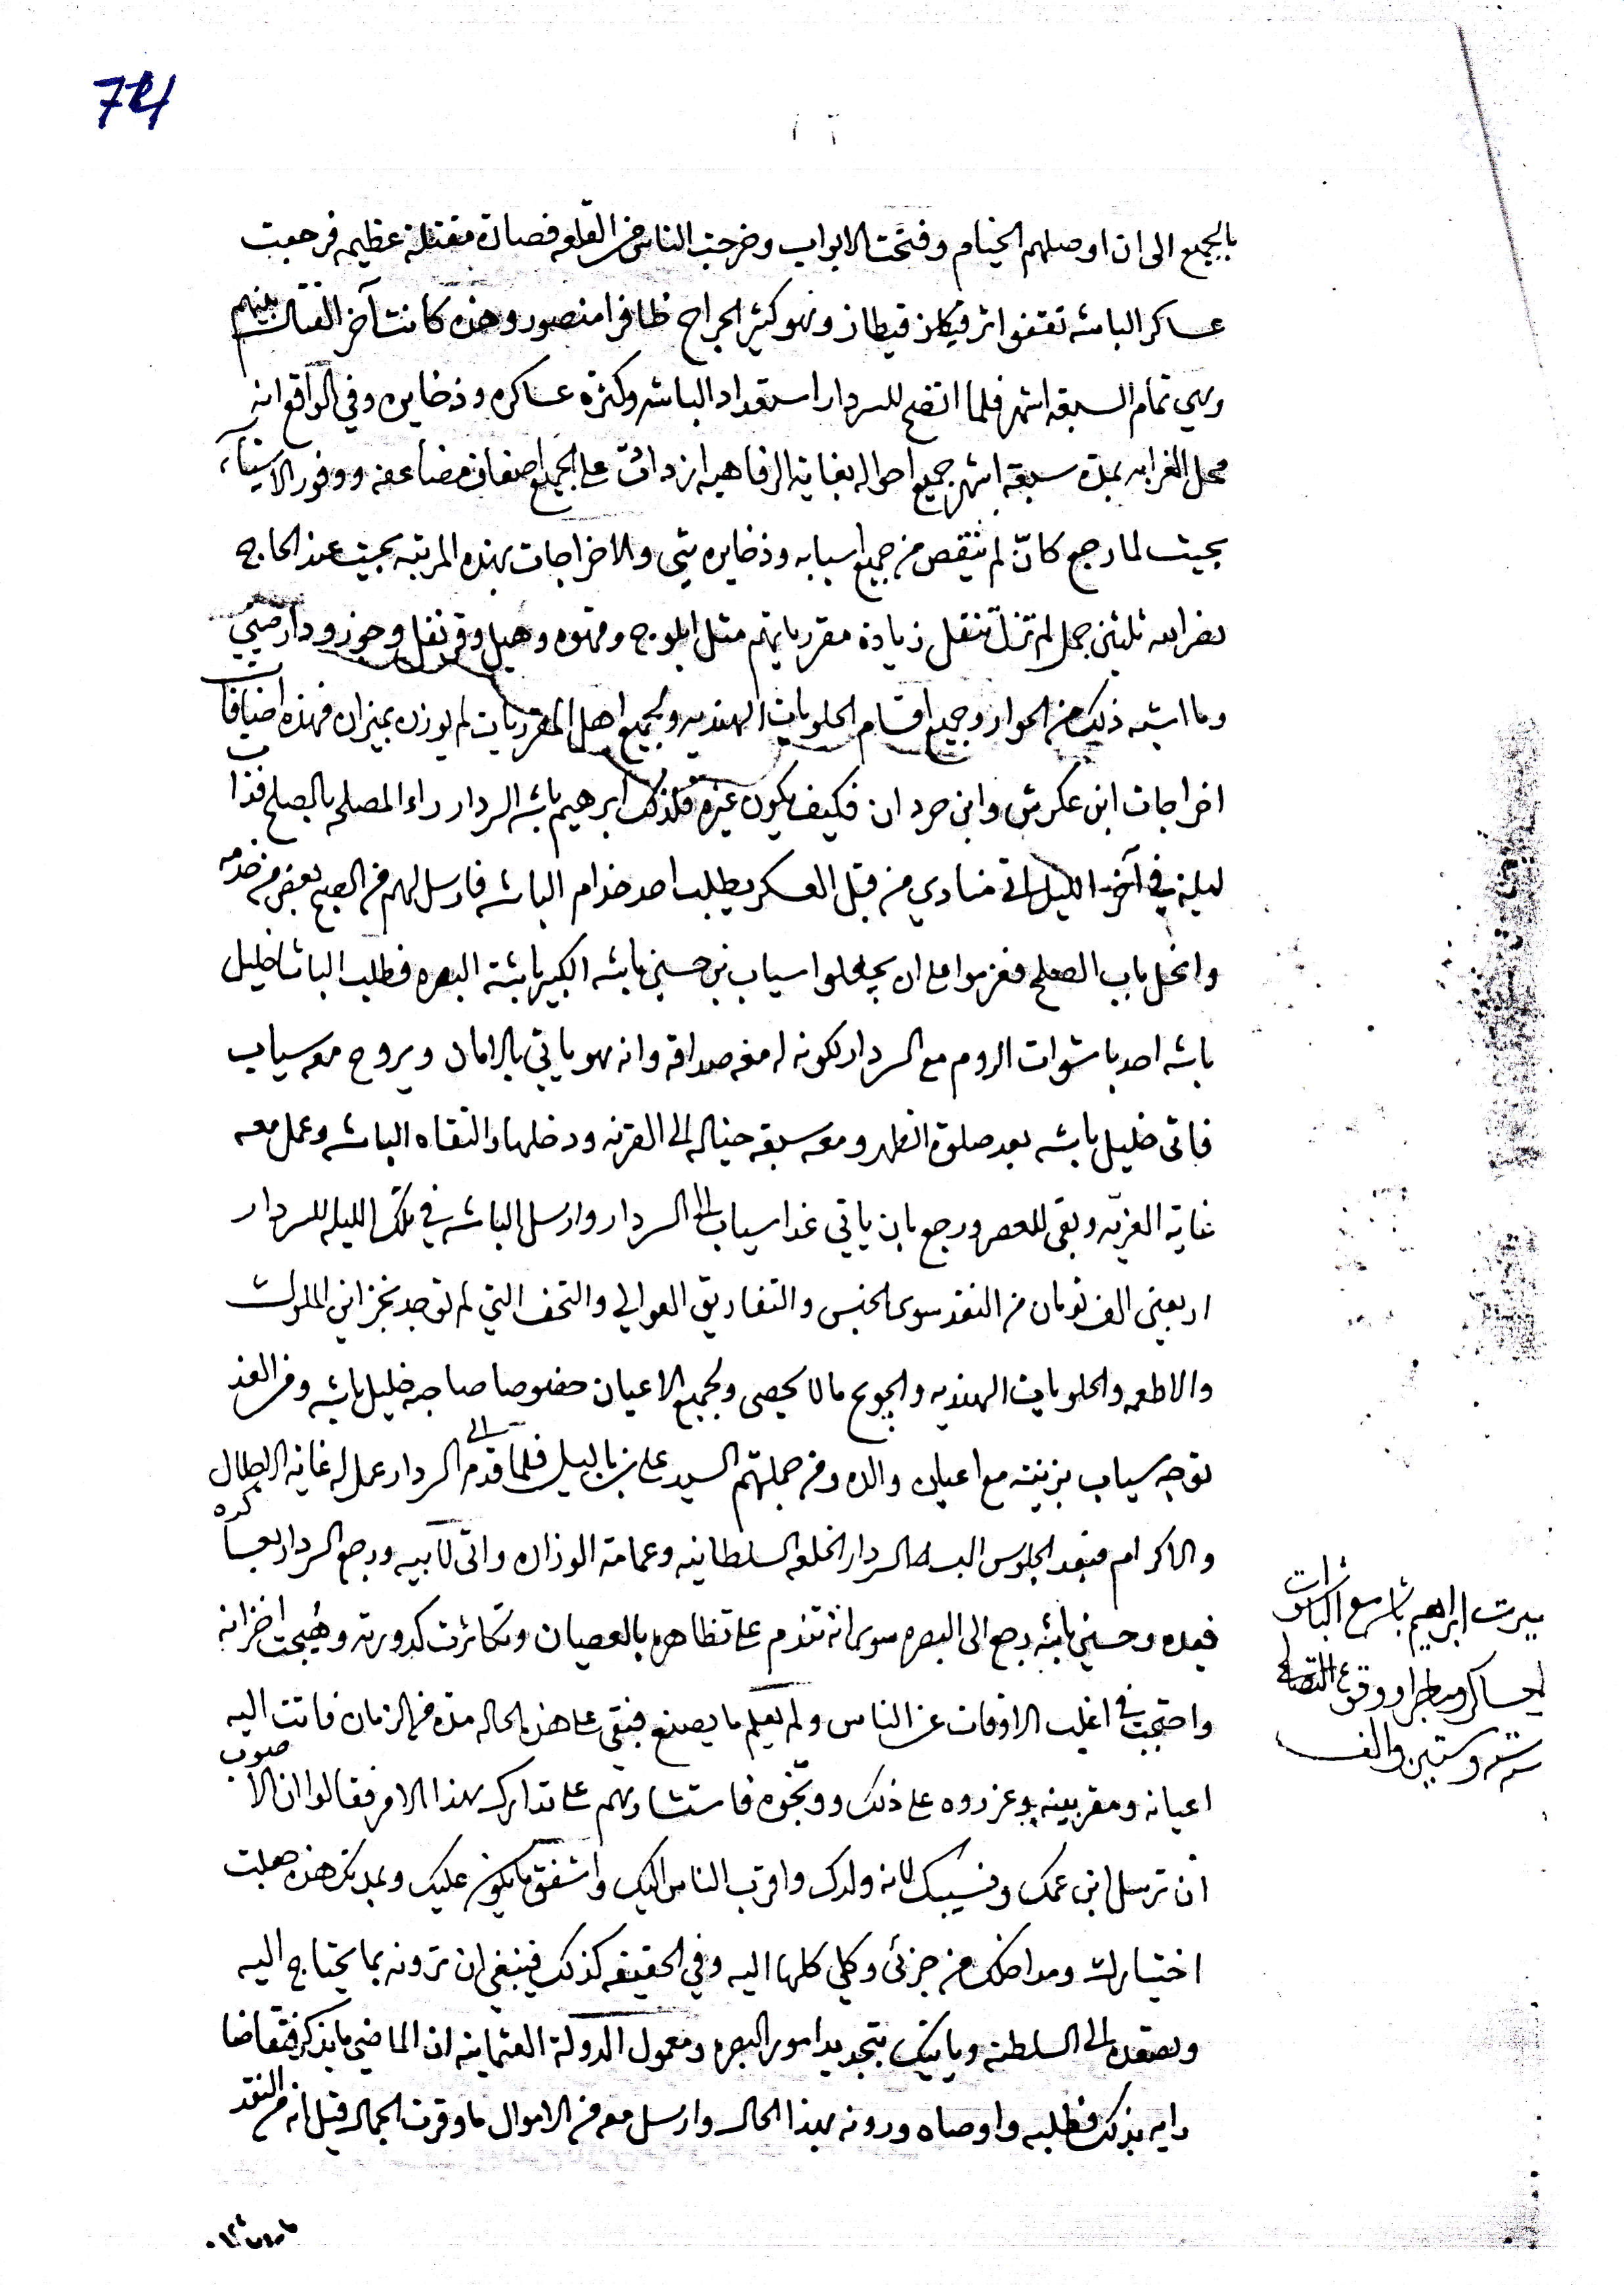 74
بالجميع الى ان اوصلهم الخيام وفتحت الابواب وخرجت الناس من القلعه فصارة مقتلة عظيمه فرجعت
عساكر الباشه تقتفوا اثر فيكان قيطاز وهو كثير الجراح ظافرا منصور وهذه كانت آخر القتال بينهم
وهي تمام السبعة اشهر فلما اتضح للسردار استعداد الباشه وكثرة عساكره وذخايره وفي الواقع انه
محل الغرابه بمدة سبعة اشهر جميع احواله بغاية الرفاهيه ازدادت على الجميع اضعاف مضاعفه ووفور الاشياء
بحيث لما رجع كانّ لم ينقص من جميع اسبابه وذخايره شي والاخراجات بهذه المرتبه بحيث عند الحاج
نصر الله ثلثين جمل لم تزل تنقل زيادة مقررياتهم مثل ابلوج وقهوه وهيل وقرنفل وجوز ودارصيني
وما اشبه ذلك من الحوار وجميع اقسام الحلويات الهنديه ولجميع اهل المقرريات لم يوزن بميزان فهذه اضيافات
اخراجات ابن عكرش وابن حردان فكيف يكون غيره فلذلك ابرهيم باشه السردار راء المصلحه بالصلح فذات
ليلة في آخر الليل اتى منادي من قبل العسكر يطلب احد خدام الباشه فارسل لهم من الصبح بعض من خدمه
وانحل باب الصلح فعزموا على ان يجعلوا سياب بن حسين باشه الكبير باشة البصره فطلب الباشا خليل
باشه احد باشوات الروم مع السردار لكونه له معه صداقه وانه هو ياتي بالامان ويروح معه سياب
فاتى خليل باشه بعد صلوة الظهر ومعه سبعة خياله الى القرنه ودخلها والتقاه الباشه وعمل معه
غاية العزيّه وبقى للعصر ورجع بان ياتي غدا سياب الى السردار وارسل الباشه في تلك الليله للسردار
اربعين الف تومان من النقد سوى الجنس والتفاريق العوالي والتحف التي لم توجد بخزاين الملوك
والاطعمه والحلويات الهنديه والجوخ مالا يحصى ولجميع الاعيان خصوصا صاحبه خليل باشه ومن الغد
توجه سياب بزينته مع اعيان والده ومن جملتهم السيد على بن باليل فلما قدم الى السردار عمل له غاية الابطال
والاكرام فبعد الجلوس البسه السردار الخلعه السلطانيه وعمامة الوزاره واتى لابيه ورجع السردار بعساكره
فبعده وحسين باشه رجع الى البصره سوى انه تندم على تظاهره بالعصيان وتكاثرت كدورته وهُيجت احزانه
واحتجب في اغلب الاوقات عن الناس ولم يعلم ما يصنع فبقى على هذه الحاله مدة من الزمان فاتت اليه
اعيانه ومقربينه وعزروه على ذلك ووبّخوه فاستشارهم على تدارك بهذا الامر فقالوا ان الاصوب
ان ترسل ابن عمك ونسيبك لانه ولدك واقرب الناس اليك واشفق ما يكون عليك وبمدتك هذه جعلت
اختيارك ومداخلك من جزئى وكلي كلها اليه وفي الحقيقه كذلك فينبغي ان ترونه بما يحتاج اليه
وتصعده الى السلطنه وياتيك بتجديد امور البصره ومعمول الدولة العثمانيه ان الماضي ما يذكر فتقاضا
رايه بذلك فطلبه واوصاه ورونه بهذا الحال وارسل معه من الاموال ما وقرت الجمال قيل انه من النقد
سيرت ابراهيم باشه مع الباشوات
لعساكر ووقوع التصالح
سنة وستين والف